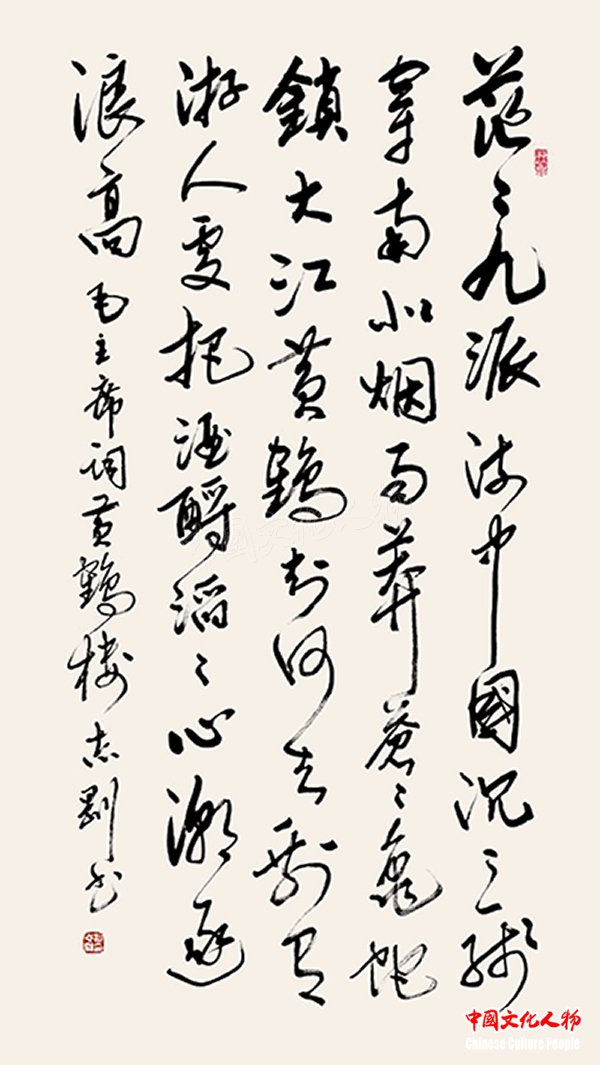 茫〻九派流中國沉〻一线
穿南北烟雨莽蒼〻龜蛇
鎖大江黄鶴知何去剩有
游人處把酒酹滔〻心潮逐
浪高 毛主席词黄鶴楼 志剛书
中國文化人物
Chinese Culture People